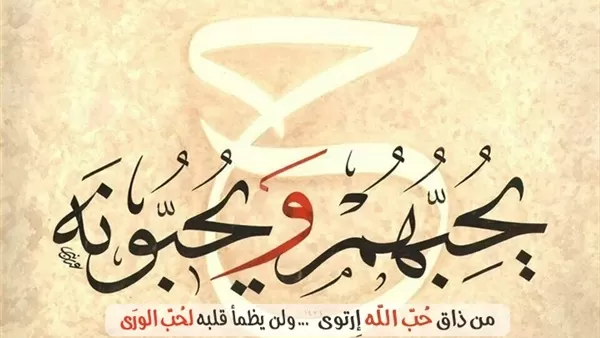 يُحِبُّهُمْ وَيُحِبُّونَهُ
من ذاق حُبّ اللّه إرتوى ... ولن يظمأ قلبه لحُبّ الورَى